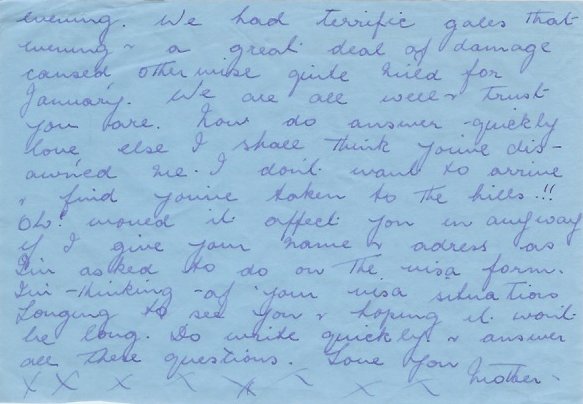 evening. We had terrific gales that
evening & a great deal of damage
caused otherwise quite mild for
January. We are all well & trust
you are. Now do answer quickly
love else I shall think you've dis-
owned me. I don't want to arrive
& find you've taken to the hills.!!
Oh! would it affect you in anyway
if I give your name & adress as
I'm asked to do on the visa form.
I'm -thinking -of your visa situation
Longing to see you & hoping it won't
be long. Do write quickly & answer
all these questions. Love you Mother-
X X X X X X X X